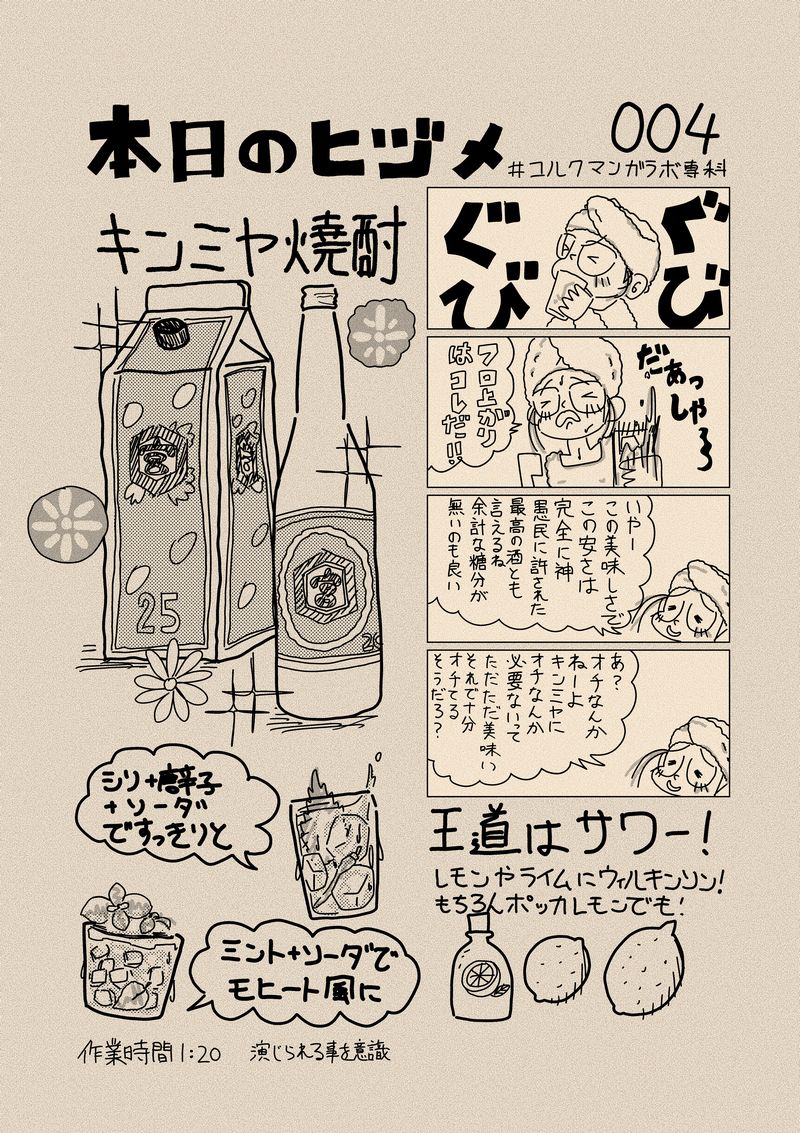 本日のヒヅメ
004
#コルクマンガラボ専科
キンミヤ焼酎
宮
25
宮
20
ぐび
ぐび
だあっしゃ〜
フロ上がり
はコレだ!!
いやー
この美味しさで
この安さは
完全に神
愚民に許された
最高の酒とも
言えるね
余計な糖分が
無いのも良い
あ?
オチなんか
ねーよ
キンミヤに
オチなんか
必要ないって
ただただ美味い
それで十分
オチてる
そうだろ?
シソ+唐辛子
+ソーダ
ですっきりと
ミント+ソーダで
モヒート風に
王道はサワー!
レモンやライムにウィルキンソン!
もちろんポッカレモンでも!
作業時間1:20
演じられる事を意識